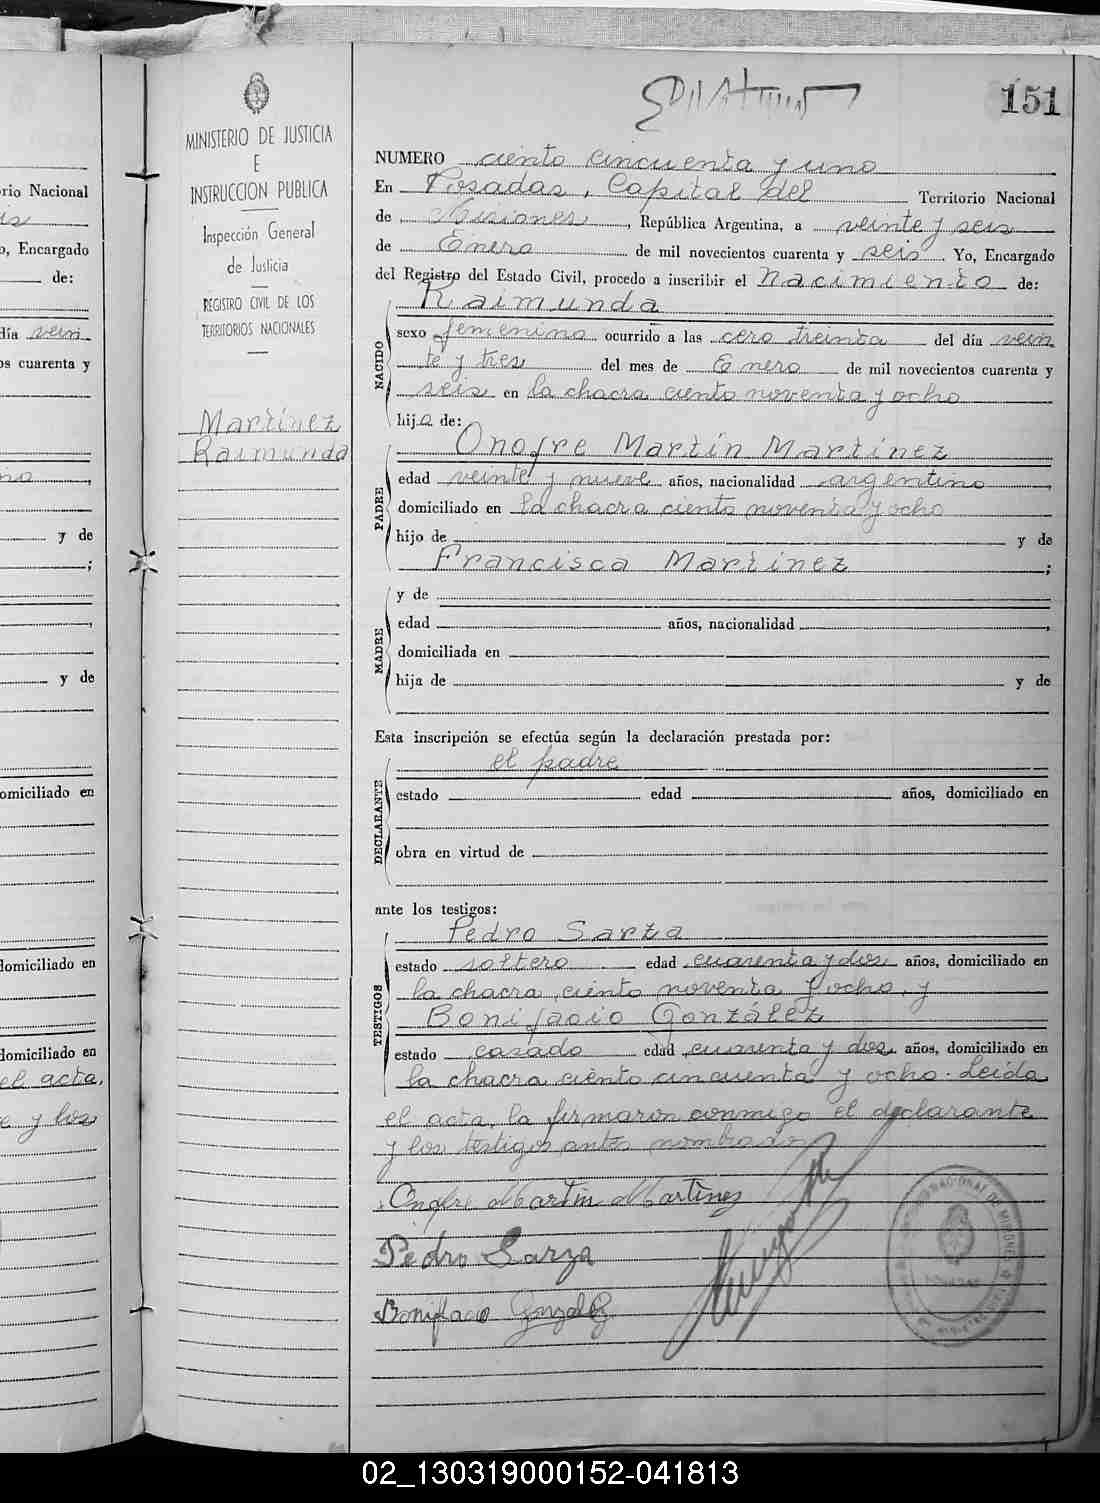 151
MINISTERIO DE JUSTICIA
E
INSTRUCCION PUBLICA
Inspección General
de Justicia
REGISTRO CIVIL DE LOS
TERRITORIOS NACIONALES
Martínez
Raimunda
NUMERO ciento cincuenta y uno
En Posadas, Capital del Territorio Nacional
de Misiones, República Argentina, a veinte y seis
de Enero de mil novecientos cuarenta y seis. Yo, Encargado
del Registro del Estado Civil, procedo a inscribir el Nacimiento de:
NACIDO
Raimunda
sexo femenino ocurrido a las cero treinta del día vein
te y tres del mes de Enero de mil novecientos cuarenta y
seis en la chacra ciento noventa y ocho
hija de:
PADRE
Onofre Martín Martínez
edad veinte y nueve años, nacionalidad argentino
domiciliado en la chacra ciento noventa y ocho
hijo de y de
Francisca Martinez ;
MADRE
y de
edad años, nacionalidad ,
domiciliada en
hija de y de
Esta inscripción se efectúa según la declaración prestada por:
DECLARANTE
el padre
estado edad años, domiciliado en
obra en virtud de
ante los testigos:
TESTIGOS
Pedro Sarza
estado soltero edad cuarenta y dos años, domiciliado en
la chacra ciento noventa y ocho, y
Bonifacio González
estado casado edad cuarenta y dos años, domiciliado en
la chacra ciento cincuenta y ocho. Leída
el acta, la firmaron conmigo el declarante
y los testigos antes nombrados
Onofre Martin Martínez
Pedro Sarza
Bonifacio Gonzalez
rio Nacional
o, Encargado
de:
día vein
os cuarenta y
y de
;
y de
omiciliado en
domiciliado en
domiciliado en
el acta,
e y los
02_130319000152-041813